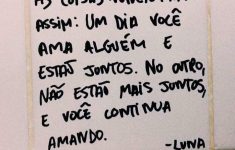 AS COISAS
ASSIM: UM DIA VOCÊ
AMA ALGUÉM E
ESTÃO JUNTOS. NO OUTRO,
NÃO ESTÃO MAIS JUNTOS,
E VOCÊ CONTINUA
AMANDO.
-LUNA